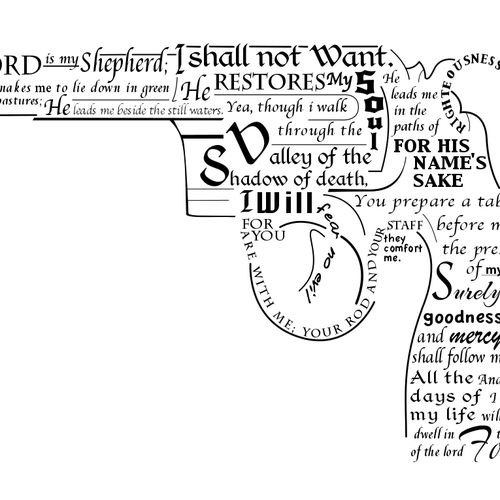 ORD is my Shepherd; I shall not Want.
makes me to lie down in green
pastures; He leads me beside the still waters.
He RESTORES My Soul
He
leads me
in the
paths of
RIGHTEOUSNESS
FOR HIS
NAME'S
SAKE
Yea, though i walk
through the
Valley of the
Shadow of death,
I Will fear no evil
FOR
YOU
ARE WITH ME; YOUR ROD AND YOUR
STAFF
they
comfort
me.
You prepare a tab
before m
the pre
of my
Surely
goodness
and mercy
shall follow m
All the
days of
my life will
dwell in
of the lord Fo